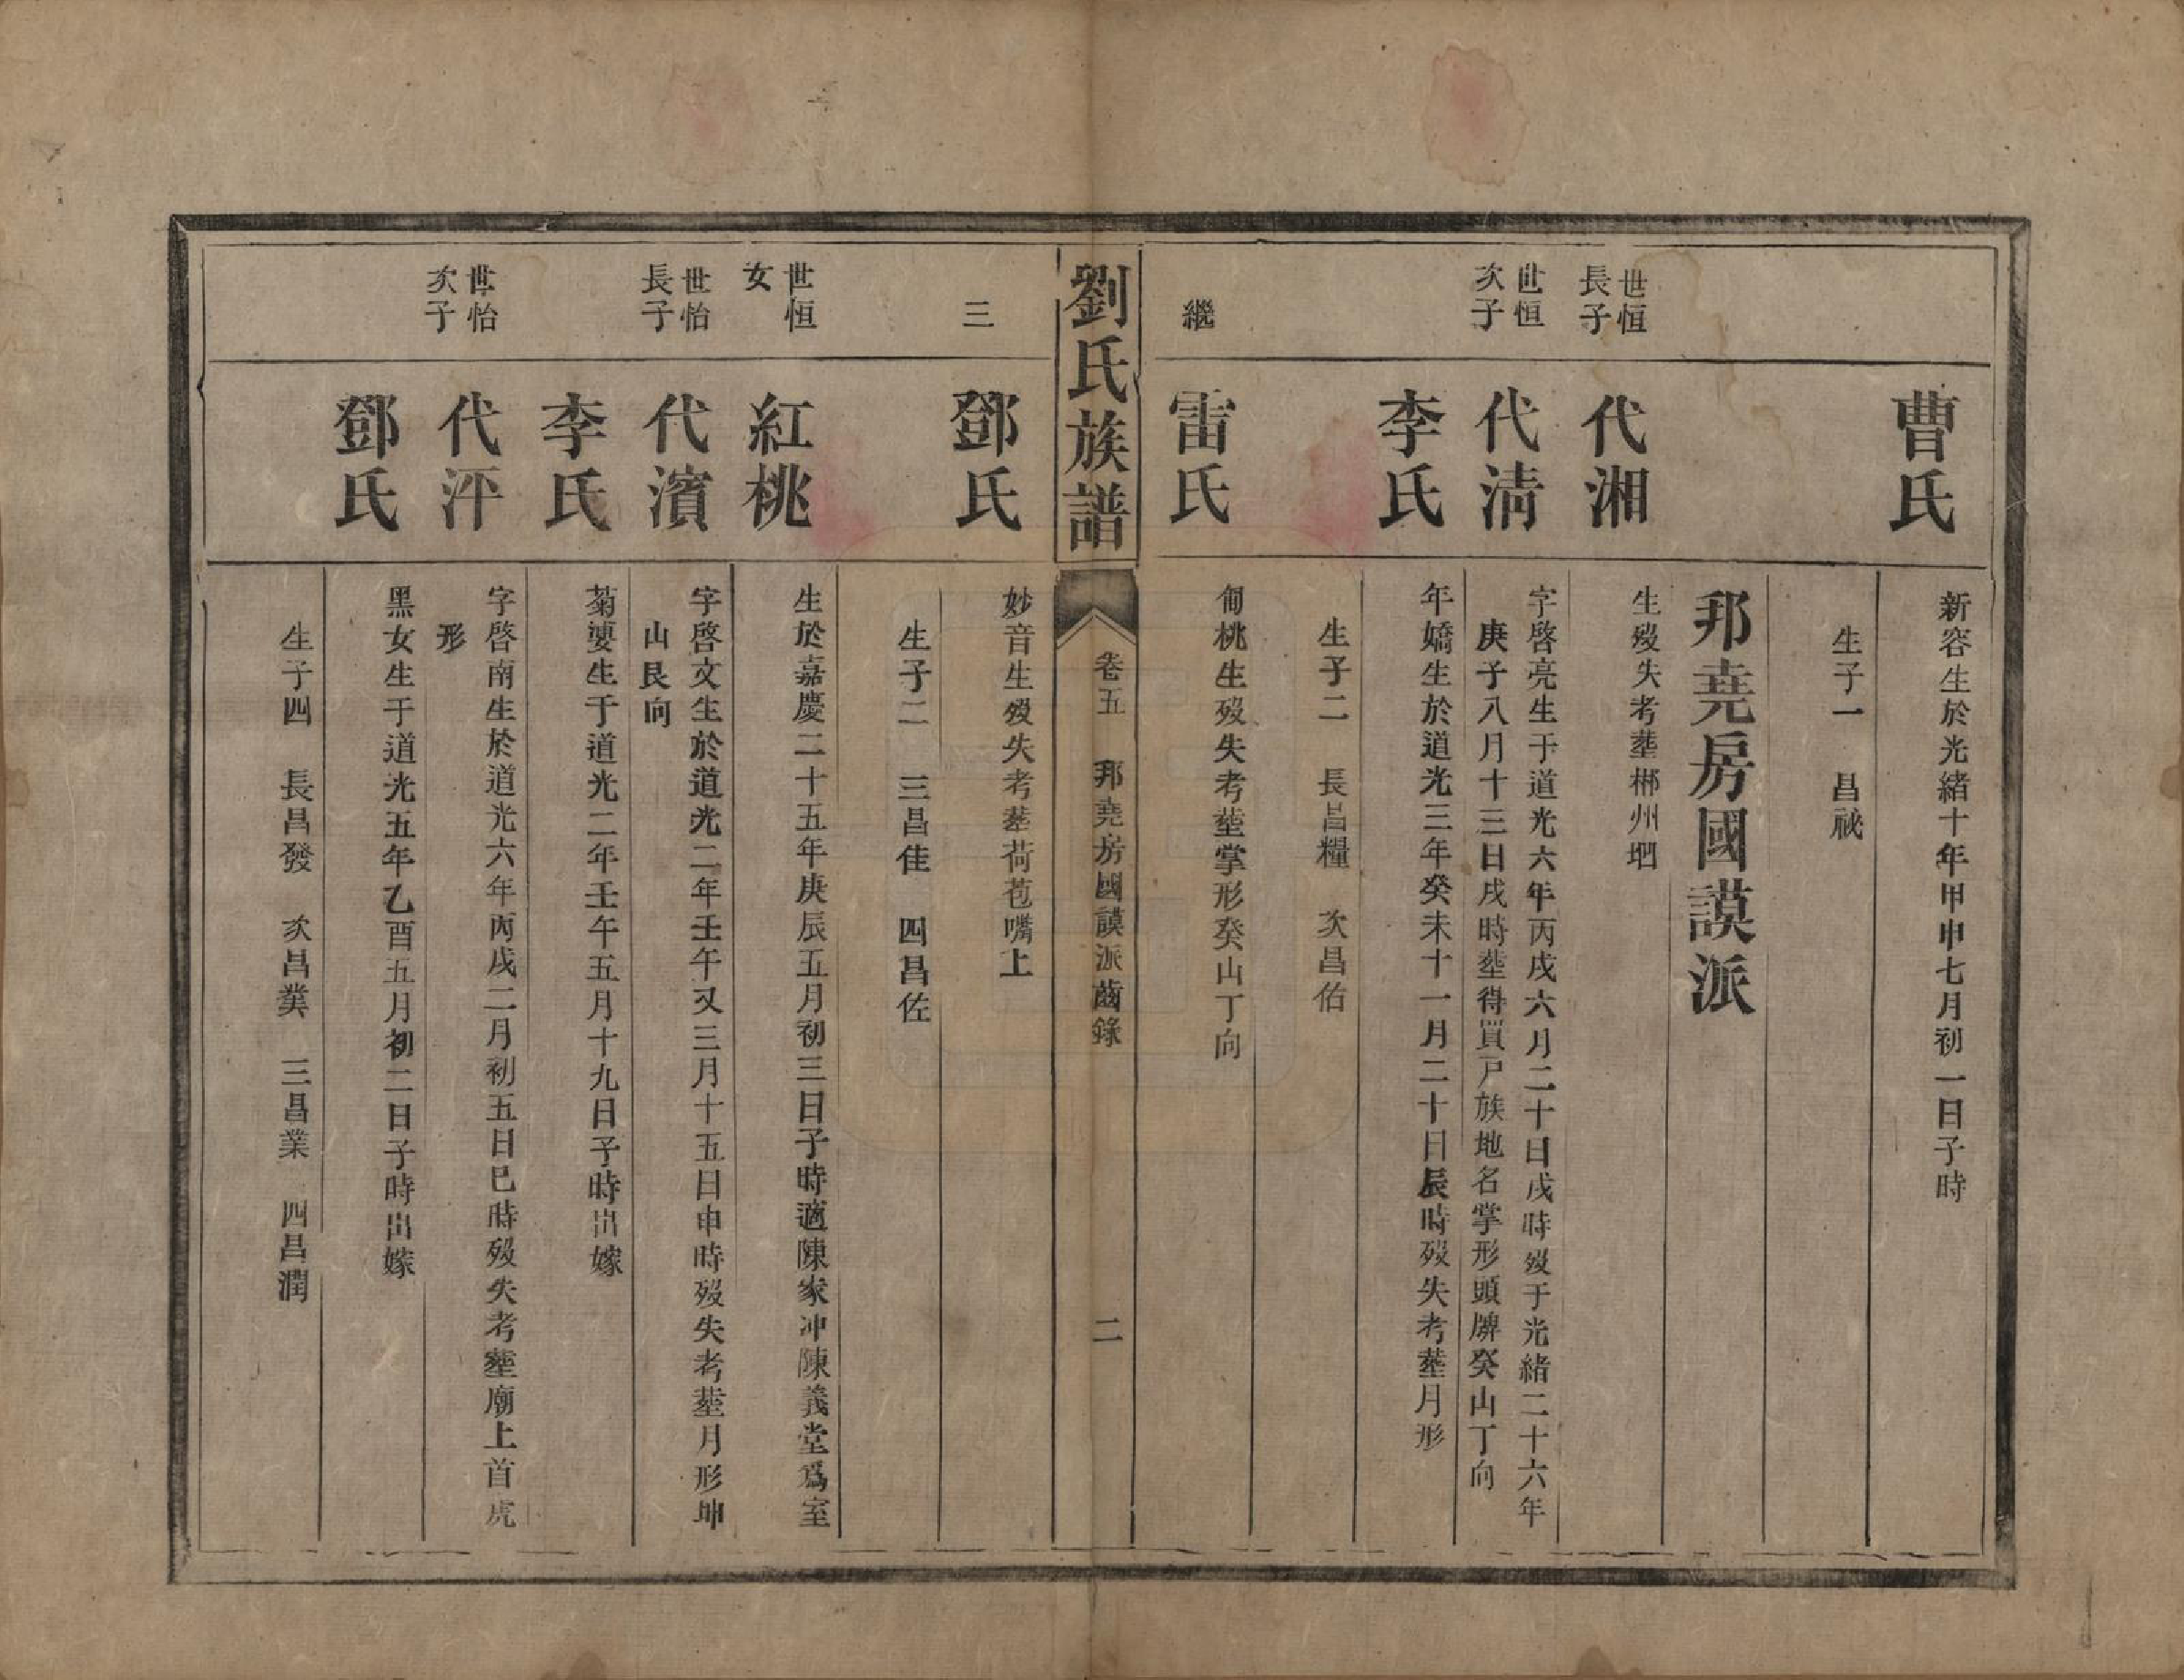 曹氏
新容生於光緒十年甲申七月初一日子時
生子一　昌祕
邦堯房國謨派
世恒
長子
代湘
生歿失考塟郴州垇
世恒
次子
代清
字啓亮生于道光六年丙戌六月二十日戌時歿于光緒二十六年
庚子八月十三日戌時塟得買戸族地名掌形頭牌癸山丁向
李氏
年嬌生於道光三年癸未十一月二十日辰時歿失考塟月形
生子二　長昌糧　次昌佑
繼
雷氏
甸桃生歿失考塟掌形癸山丁向
劉氏族譜
卷五　邦堯房國謨派齒錄
二
三
鄧氏
妙音生歿失考塟荷苞嘴上
生子二　三昌佳　四昌佐
世恒
女
紅桃
生於嘉慶二十五年庚辰五月初三日子時適陳家冲陳義堂爲室
世怡
長子
代濱
字啓文生於道光二年壬午又三月十五日申時歿失考塟月形坤
山艮向
李氏
菊婆生于道光二年壬午五月十九日子時出嫁
世怡
次子
代泙
字啓南生於道光六年丙戌二月初五日巳時歿失考塟廟上首虎
形
鄧氏
黑女生于道光五年乙酉五月初二日子時出嫁
生子四　長昌發　次昌冀　三昌業　四昌潤